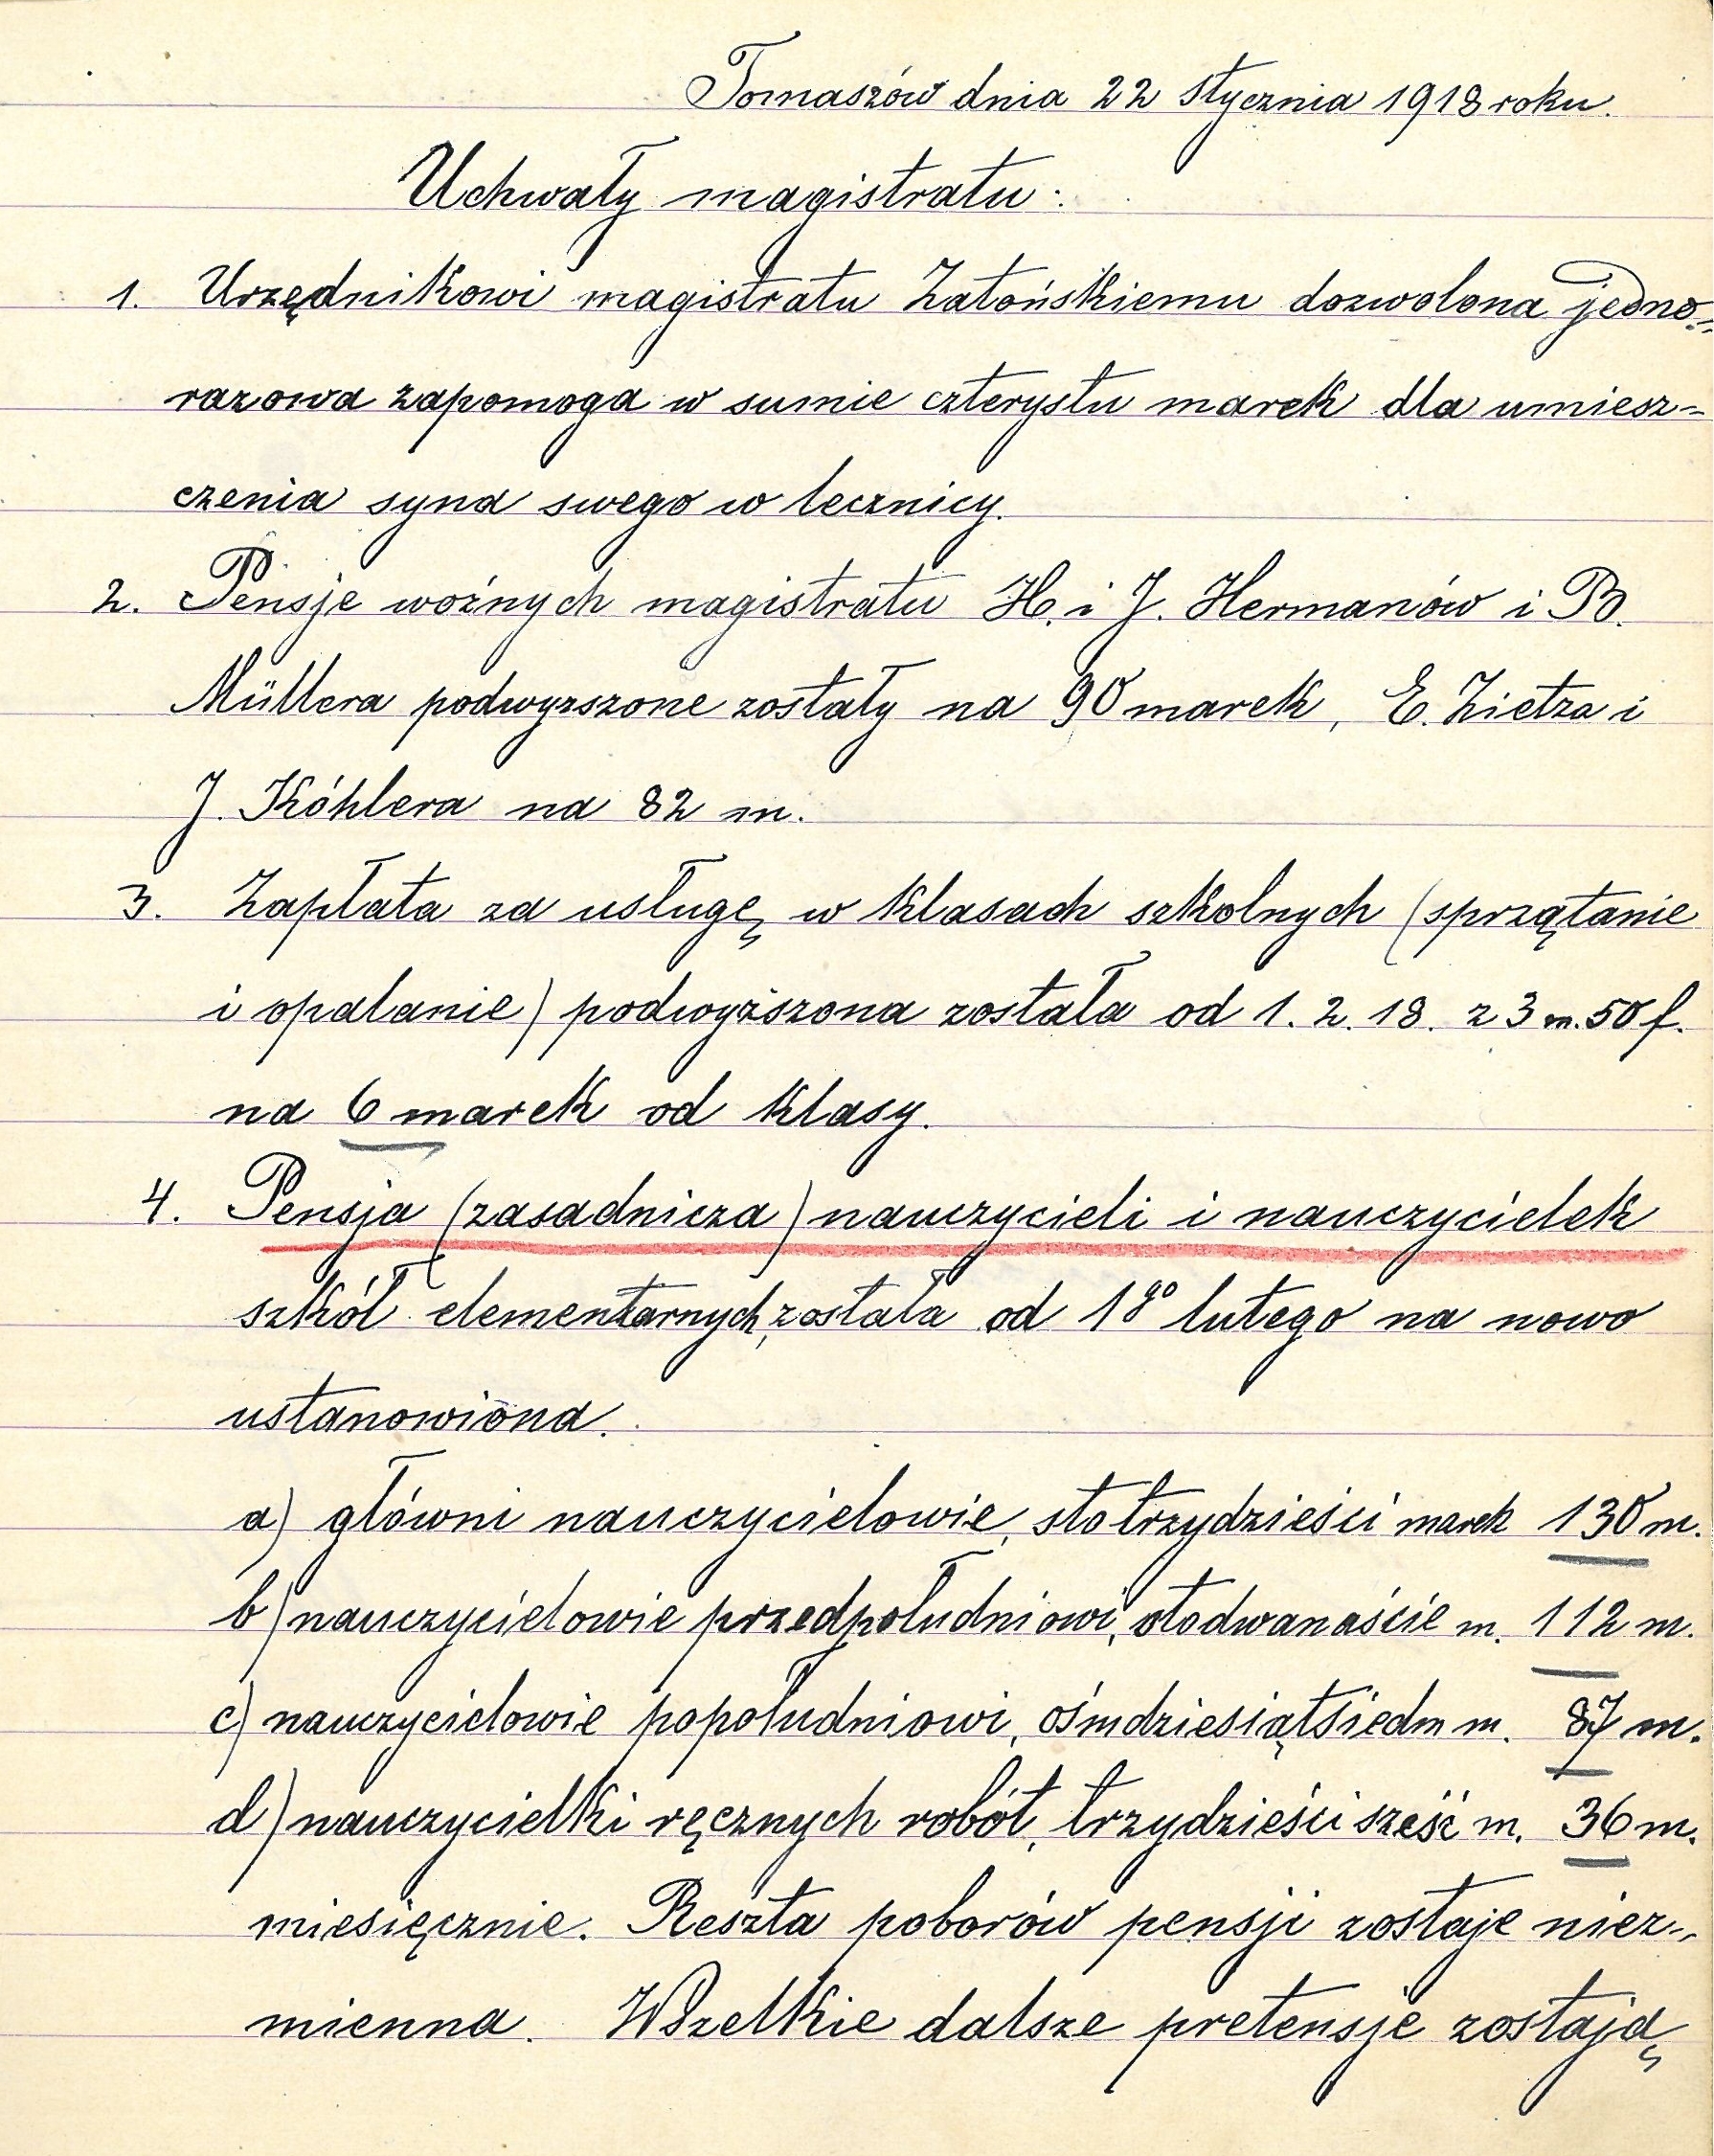 Tomaszów dnia 22 stycznia 1918 roku.
Uchwały magistratu:
1. Urzędnikowi magistratu Zatońskiemu dozwolona jedno-
razowa zapomoga w sumie czterystu marek dla umiesz-
czenia syna swego w lecznicy.
2. Pensje woźnych magistratu H. i J. Hermanów i B.
Müllera podwyzszone zostały na 90 marek, E. Zietza i
J. Kóhlera na 82 m.
3. Zapłata za usługę w klasach szkolnych (sprzątanie
i opalanie) podwyższona została od 1. 2. 18. z 3 m. 50 f.
na 6 marek od klasy.
4. Pensja (zasadnicza) nauczycieli i nauczycielek
szkół elementarnych, została od 1go lutego na nowo
ustanowiona.
a) główni nauczycielowie, sto trzydzieści marek 130 m.
b) nauczycielowie przedpołudniowi, stodwanaście m. 112 m.
c) nauczycielowie popołudniowi, ośmdziesiątsiedm m. 87 m.
d) nauczycielki ręcznych robót, trzydzieści sześć m. 36 m.
miesięcznie. Reszta poborów pensji zostaje niez-
mienna. Wszelkie dalsze pretensje zostają